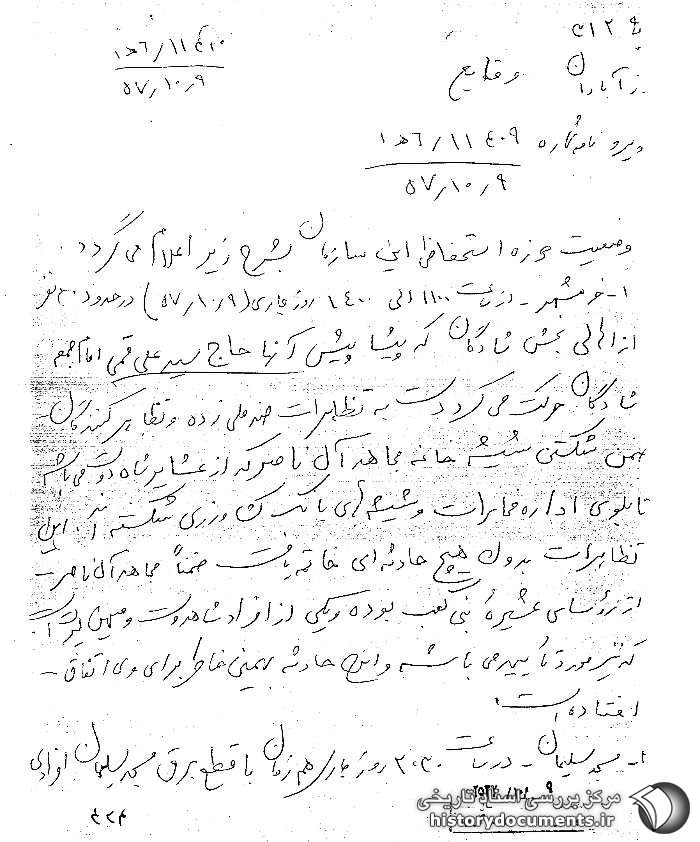 به ۳۱۲
۱ه‍ ۶/۱۱۴۱۰
۵۷/۱۰/۹
از آبادان وقایع
پیرو نامه شماره ۱۱۴۰۹/۶ه‍ ۱
۵۷/۱۰/۹
وضعیت حوزه استحفاظی این سازمان بشرح زیر اعلام می گردد.
۱- خرمشهر - از ساعت ۱۱۰۰ الی ۱۴۰۰ روز جاری (۵۷/۱۰/۹) در حدود نفر
از اهالی بخش شادگان که پیشاپیش آنها حاج سید علی قمی امام جمعه
شادگان حرکت می کرد دست به تظاهرات ضد ملی زده و تظاهر کنندگان -
ضمن شکستن شیشه خانه مجاهد آل ناصر که از عشایر شاه دوست می باشد
تابلوی اداره مخابرات و شیشه های بانک کشاورزی شکسته اند. این
تظاهرات بدون هیچ حادثه ای خاتمه یافت ضمناً مجاهد آل ناصر -
از رؤسای عشیره بنی کعب بوده و یکی از افراد شاهدوست و میهن پرست
که نیز مورد تأیید می باشد و این حادثه بهمین خاطر برای وی اتفاق -
افتاده است
۲- مسجد سلیمان - در ساعت ۲۰۳۰ روز جاری همزمان با قطع برق مسجد سلیمان افرادی
۴۲۴
مرکز بررسی اسناد تاریخی
historydocuments.ir